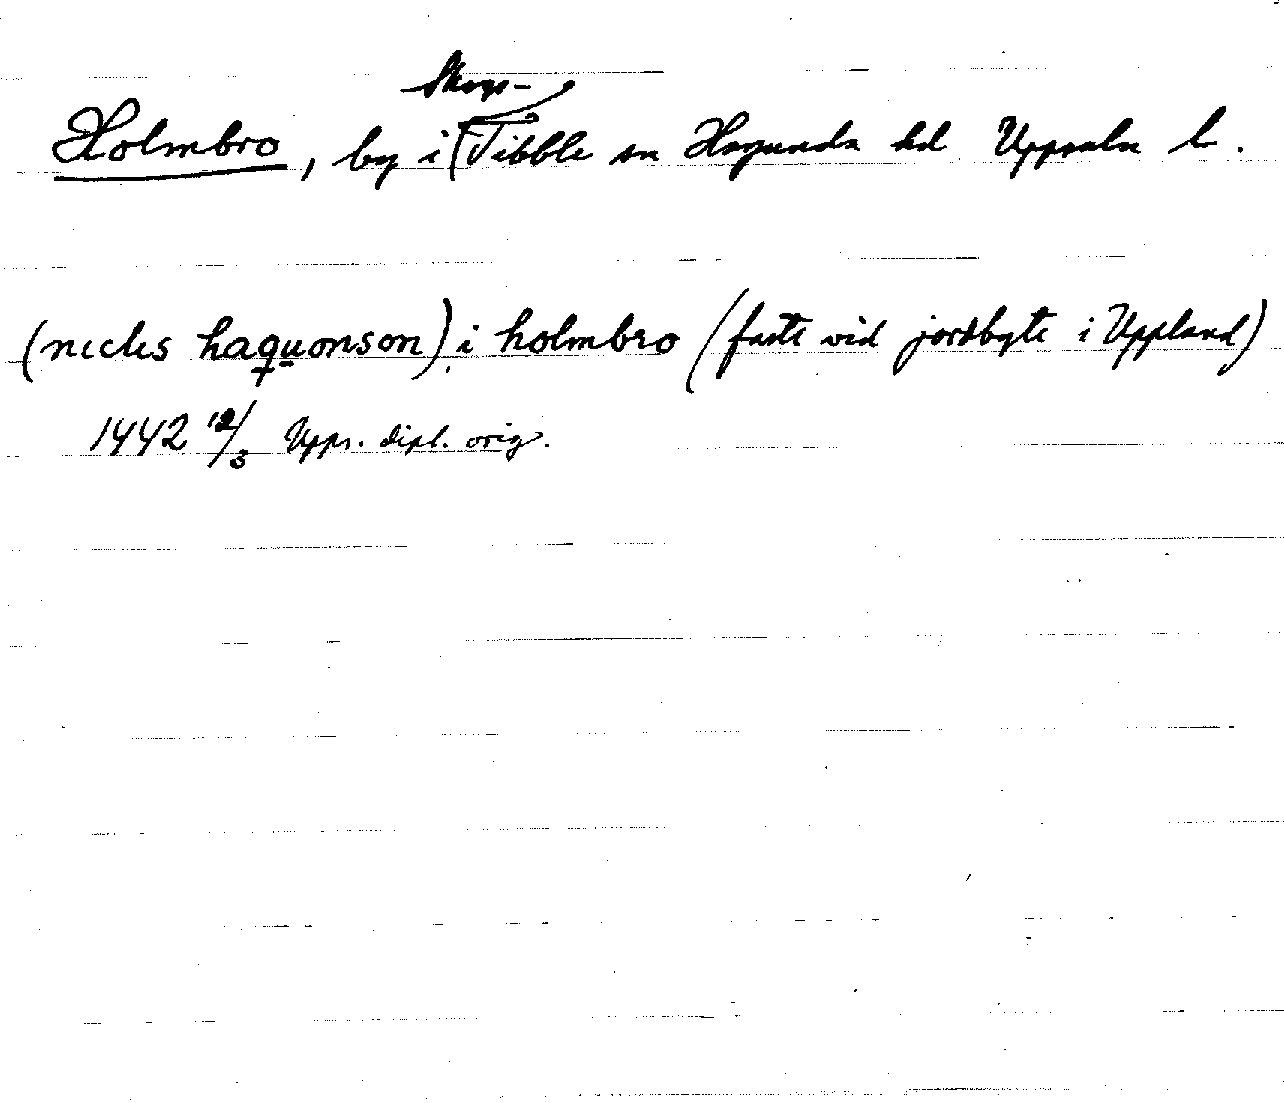 Holmbro, by i Skogs-Tibble sn Hagunda hd Uppsala l.
(niclis haquonson) i holmbro (faste vid jordbyte i Uppland)
1442 12/3 Upps. dipl. orig.